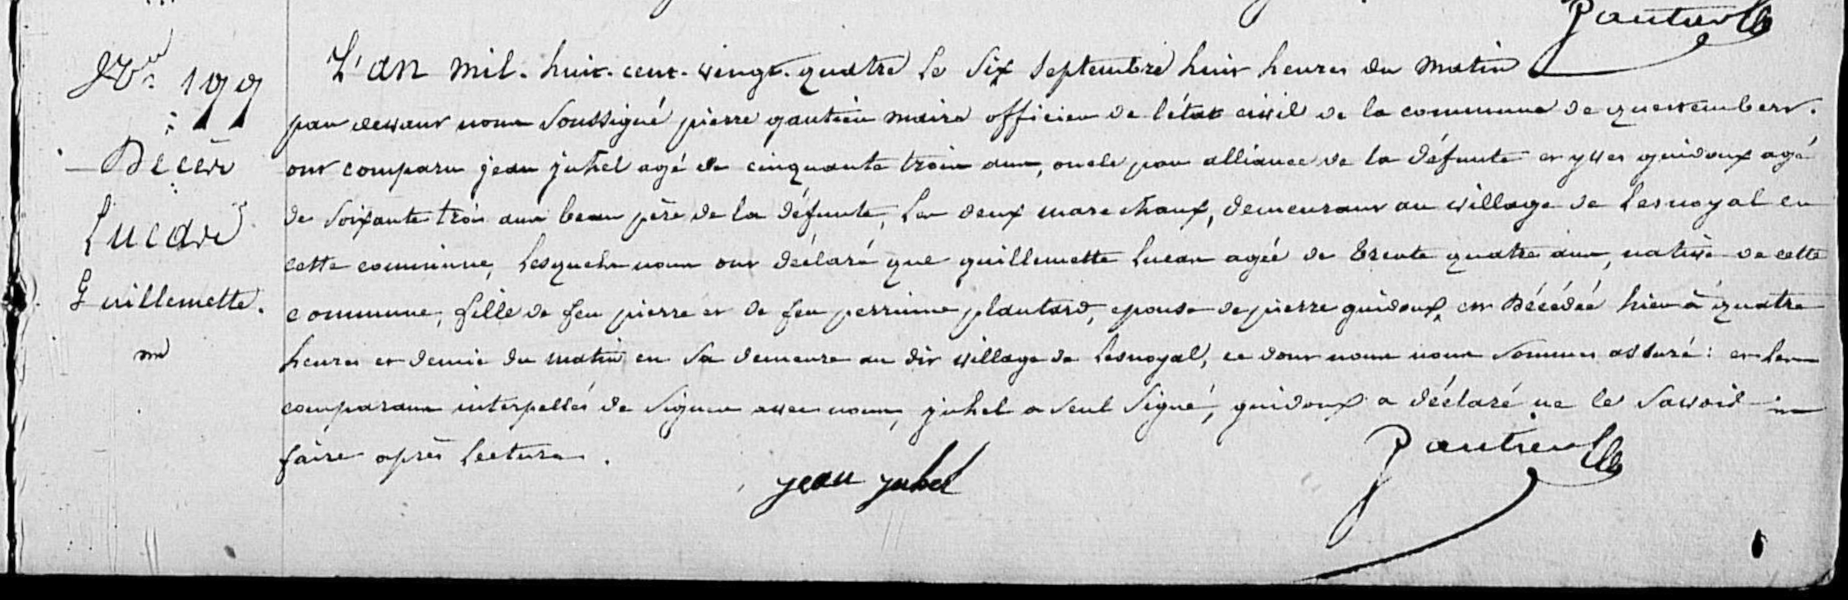 Gautier
N° 199
Décès
Lucas
Guillemette.
L'an mil. huit. cent. vingt. quatre le six septembre huit heures du matin
par devant nous soussigné pierre gautier maire officier de l'état civil de la commune de questembert.
ont comparu jean juhel agé de cinquante trois ans, oncle par alliance de la défunte et yves guidoux agé
de soixante trois ans beau père de la défunte, les deux marechaux, demeurant au village de Lesnoyal en
cette commune, lesquels nous ont déclaré que guillemette Lucas agée de trente quatre ans, native de cette
commune, fille de feu pierre et de feu perrinne plantard, epouse de pierre guidoux, est décédée hier à quatre
heures et demie du matin en sa demeure au dit village de Lesnoyal, ce dont nous nous sommes assuré : et les
comparans interpellés de signer avec nous, juhel a seul signé, guidoux a déclaré ne le savoir
faire après lecture.
jean juhel
Gautier